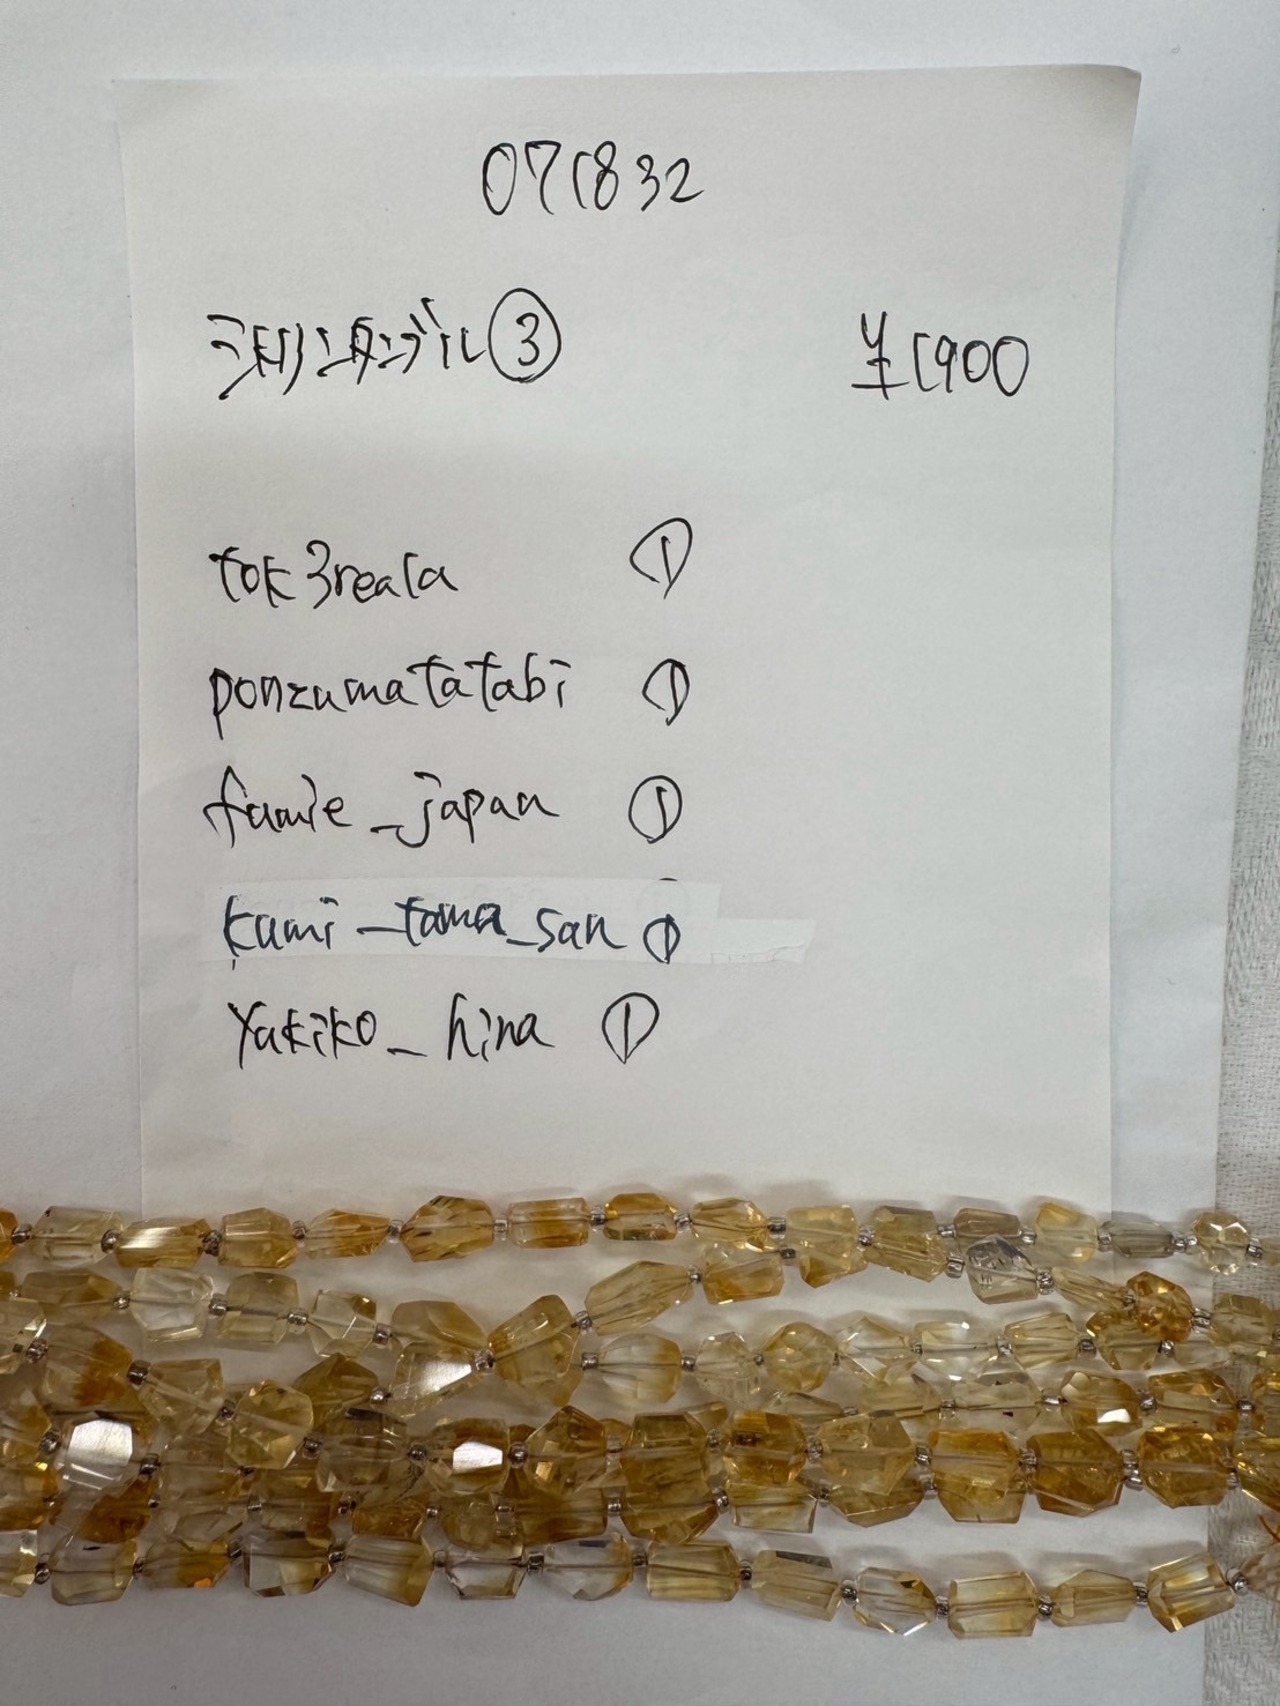 071832
シトリンタンブル③ ¥1900
tok3reala ①
ponzumatatabi ①
fumie_japan ①
kumi_tama_san ①
yukiko_hina ①